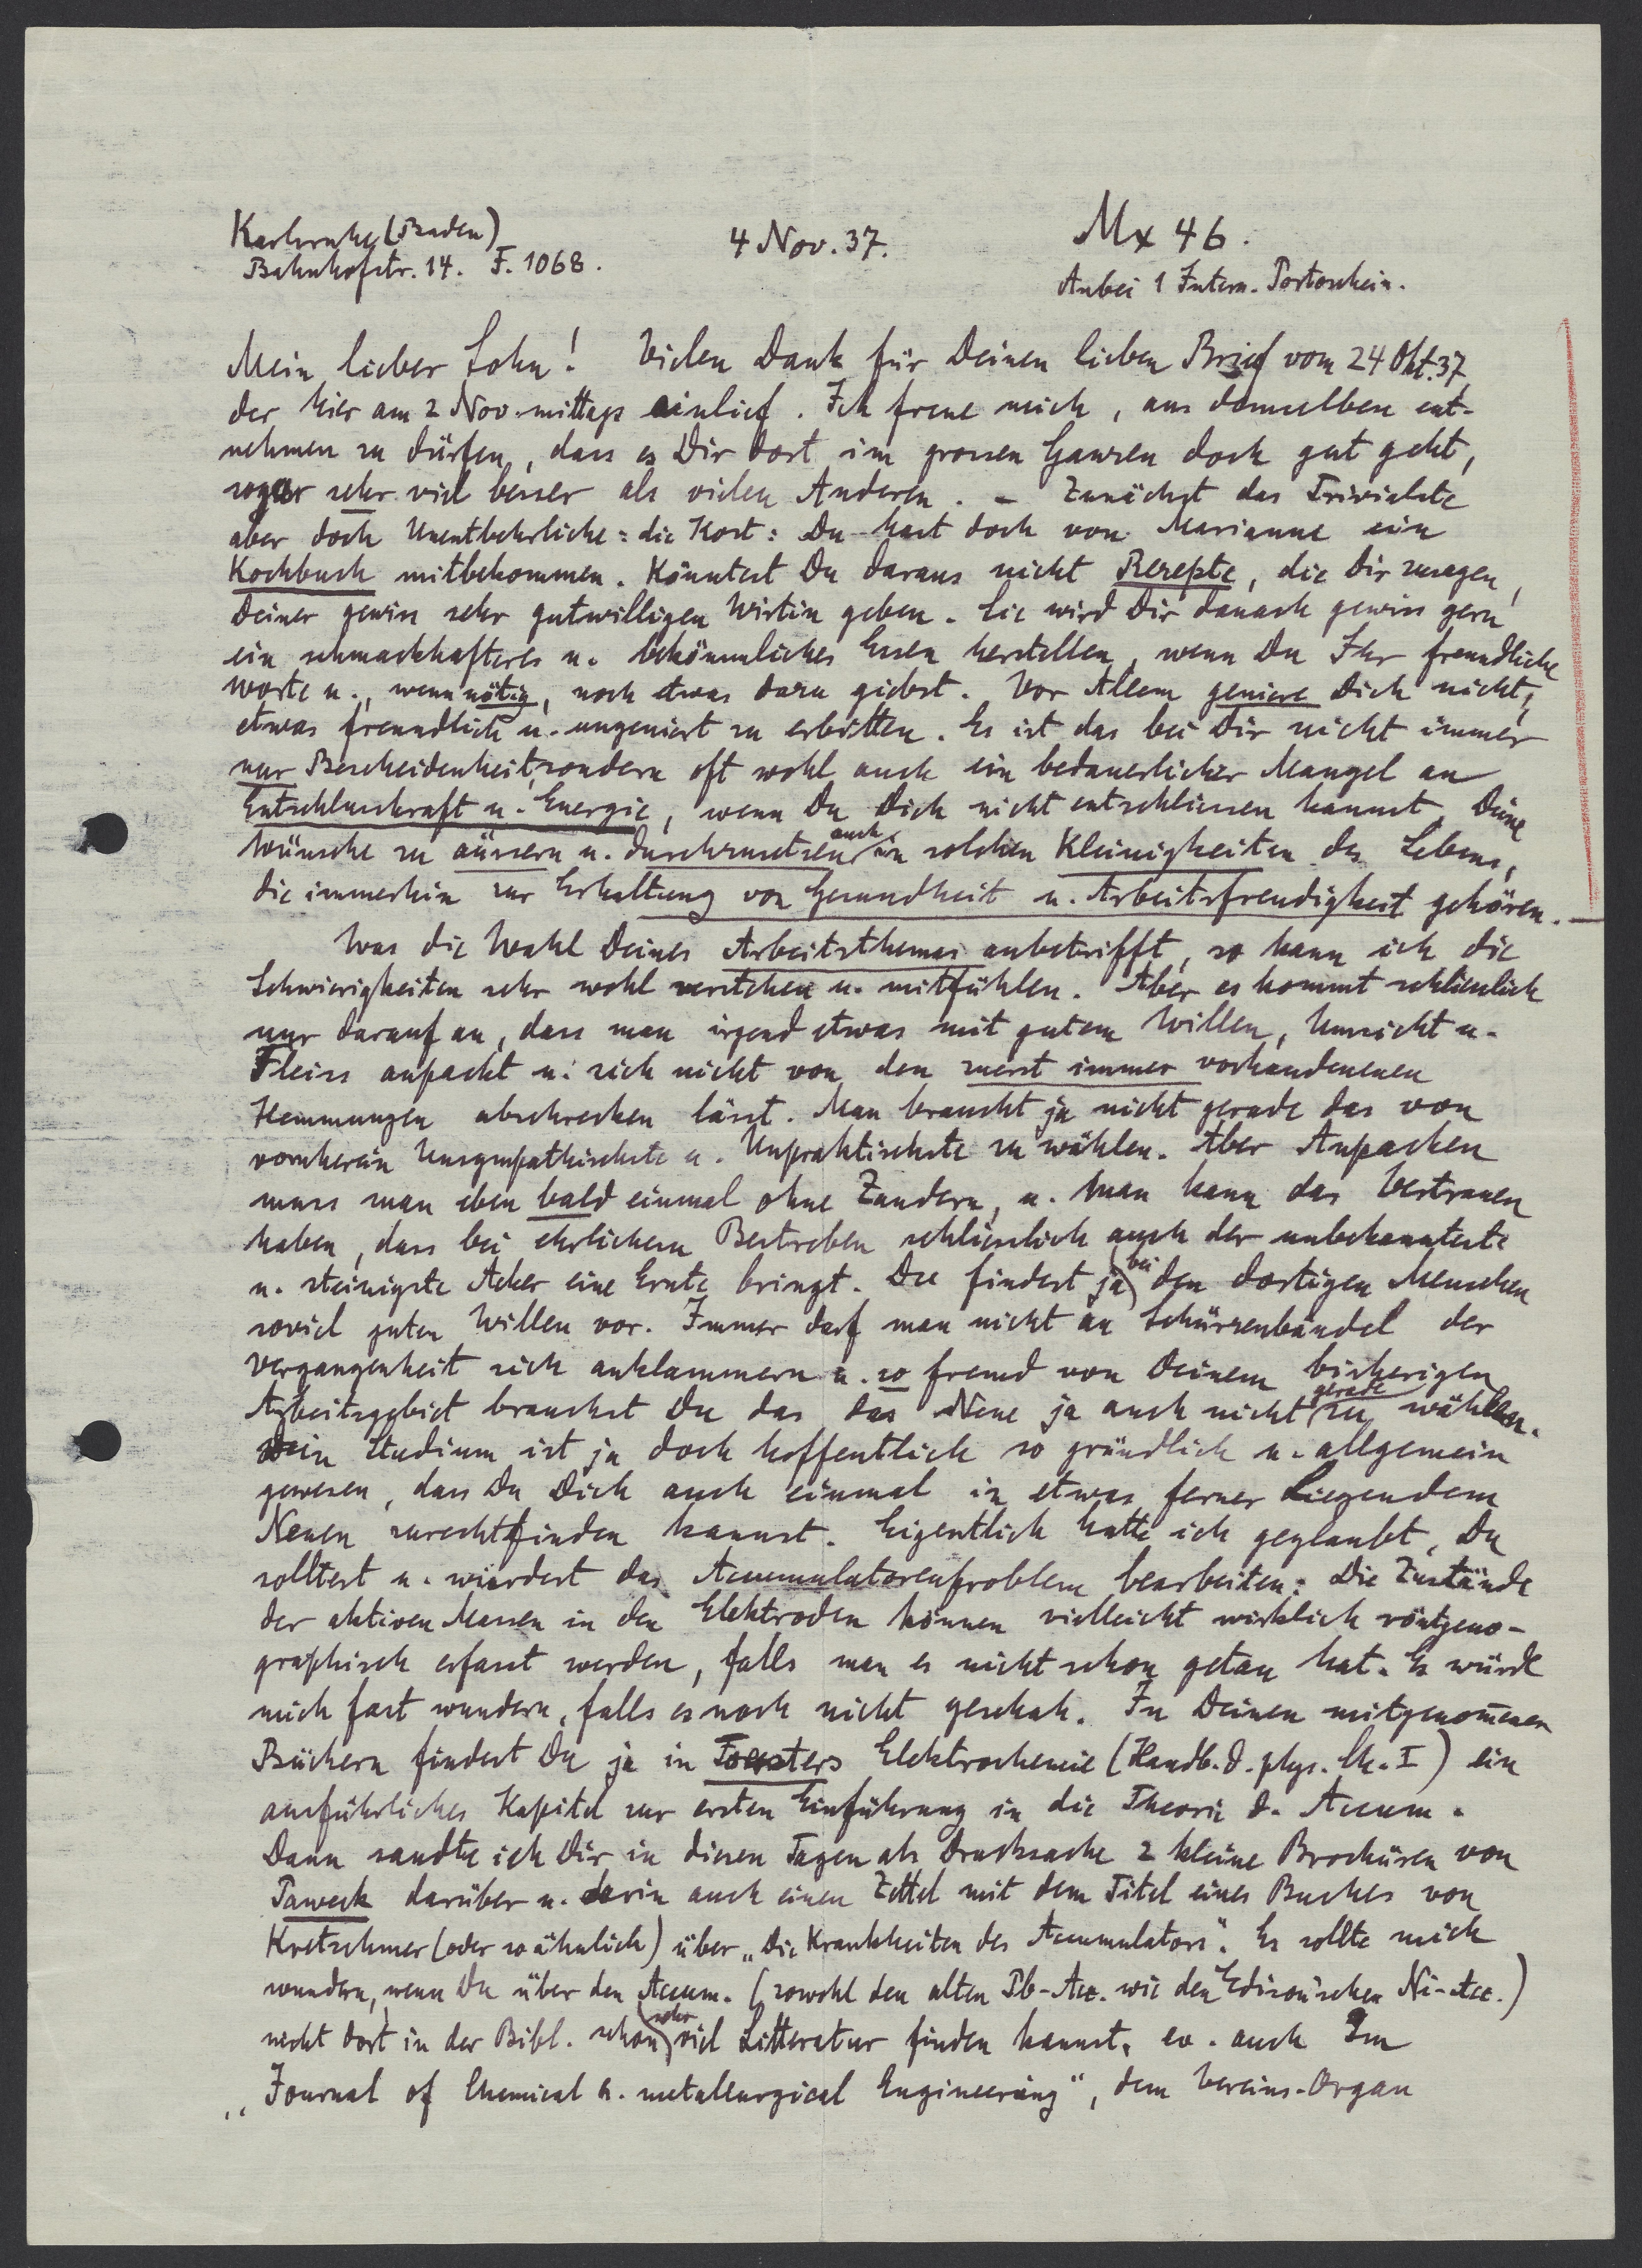 Karlsruhe (Baden)
Bahnhofstr. 14. F. 1068.
4 Nov. 37.
Mx 46.
Anbei 1 Intern. Portoschein.
Mein lieber Sohn! Vielen Dank für Deinen lieben Brief vom 24 Okt. 37,
der hier am 2 Nov. mittags einlief. Ich freue mich, aus demselben ent-
nehmen zu dürfen, dass es Dir dort im grossen Ganzen doch gut geht,
sogar sehr viel besser als vielen Anderen. – Zunächst das Trivialste
aber doch Unentbehrliche: die Kost: Du hast doch von Marianne ein
Kochbuch mitbekommen. Könntest Du daraus nicht Rezepte, die Dir zusagen,
Deiner gewiss sehr gutwilligen Wirtin geben. Sie wird Dir danach gewiss gern
ein schmackhafteres u. bekömmliches Essen herstellen, wenn Du Ihr freundliche
Worte u., wenn nötig, noch etwas dazu giebst. Vor Allem geniere Dich nicht,
etwas freundlich u. ungeniert zu erbitten. Es ist das bei Dir nicht immer
nur Bescheidenheit, sondern oft wohl auch ein bedauerlicher Mangel an
Entschlusskraft u. Energie, wenn Du Dich nicht entschliessen kannst, Deine
Wünsche zu äussern u. durchzusetzen auch in solchen Kleinigkeiten des Lebens,
die immerhin zur Erhaltung von Gesundheit u. Arbeitsfreudigkeit gehören. —
Was die Wahl Deines Arbeitsthemas anbetrifft, so kann ich die
Schwierigkeiten sehr wohl verstehen u. mitfühlen. Aber es kommt schliesslich
nur darauf an, dass man irgend etwas mit gutem Willen, Umsicht u.
Fleiss anpackt u. sich nicht von den zuerst immer vorhandenenen
Hemmungen abschrecken lässt. Man braucht ja nicht gerade das von
vornherein Unsympathischste u. Unpraktischste zu wählen. Aber Anpacken
muss man eben bald einmal ohne Zaudern, u. man kann das Vertrauen
haben, dass bei ehrlichem Bestreben schliesslich auch der unbekannteste
u. steinigste Acker eine Ernte bringt. Du findest ja bei den dortigen Menschen
soviel guten Willen vor. Immer darf man nicht an Schürzenbändel der
Vergangenheit sich anklammern u. so fremd von Deinem bisherigen
Arbeitsgebiet brauchst Du das das Neue ja auch nicht gerade zu wählen.
Dein Studium ist ja doch hoffentlich so gründlich u. allgemein
gewesen, dass Du Dich auch einmal in etwas ferner Liegendem
Neuen zurechtfinden kannst. Eigentlich hatte ich geglaubt, Du
solltest u. würdest das Accumulatorenproblem bearbeiten: Die Zustände
der aktiven Massen in den Elektroden können vielleicht wirklich röntgeno-
graphisch erfasst werden, falls man es nicht schon getan hat. Es würde
mich fast wundern, falls es noch nicht geschah. In Deinen mitgenommenen
Büchern findest Du ja in Foersters Elektrochemie (Handb. d. phys. Ch. I) ein
ausführliches Kapitel zur ersten Einführung in die Theorie d. Accum.
Dann sandte ich Dir in diesen Tagen als Drucksache 2 kleine Broschüren von
Paweck darüber u. darin auch einen Zettel mit dem Titel eines Buches von
Kretschmer (oder so ähnlich) über „Die Krankheiten des Accumulators“. Es sollte mich
wundern, wenn Du über den Accum. (sowohl den alten Pb-Acc. wie den Edison'schen Ni-Acc.)
nicht dort in der Bibl. schon sehr viel Litteratur finden kannst, ev. auch Im
„Journal of Chemical a. metallurgical Engineering“, dem Vereins-Organ